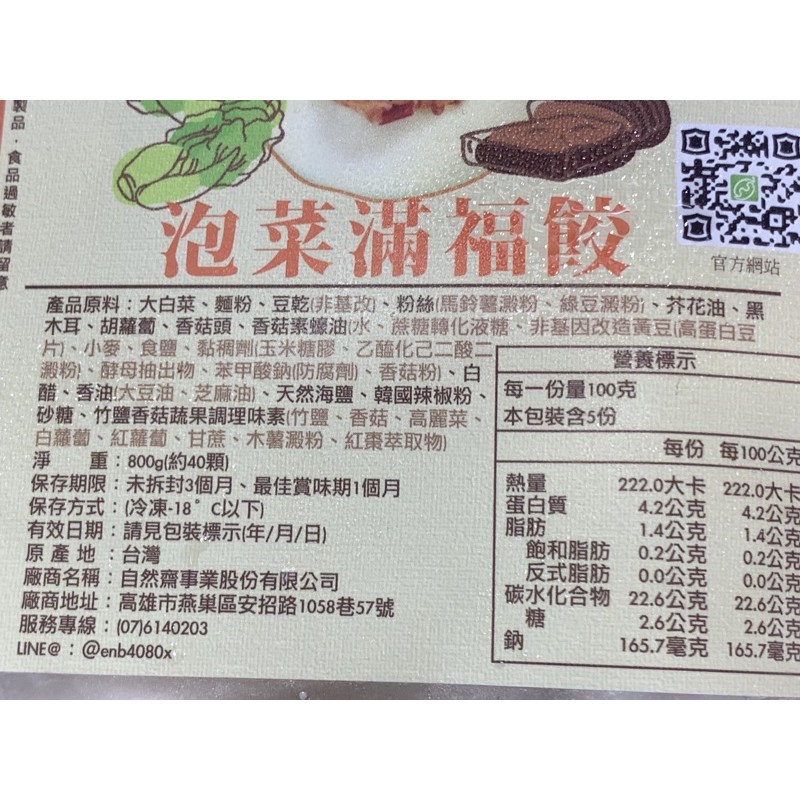 製品．食品過敏者請留意
泡菜滿福餃
官方網站
產品原料：大白菜、麵粉、豆乾(非基改)、粉絲(馬鈴薯澱粉、綠豆澱粉)、芥花油、黑
木耳、胡蘿蔔、香菇頭、香菇素蠔油(水、蔗糖轉化液糖、非基因改造黃豆(高蛋白豆
片)、小麥、食鹽、黏稠劑(玉米糖膠、乙醯化己二酸二
澱粉)、酵母抽出物、苯甲酸鈉(防腐劑)、香菇粉)、白
醋、香油(大豆油、芝麻油)、天然海鹽、韓國辣椒粉、
砂糖、竹鹽香菇蔬果調理味素(竹鹽、香菇、高麗菜、
白蘿蔔、紅蘿蔔、甘蔗、木薯澱粉、紅棗萃取物)
淨重：800g(約40顆)
保存期限：未拆封3個月、最佳賞味期1個月
保存方式：(冷凍-18°C以下)
有效日期：請見包裝標示(年/月/日)
原產地：台灣
廠商名稱：自然齋事業股份有限公司
廠商地址：高雄市燕巢區安招路1058巷57號
服務專線：(07)6140203
LINE@：@enb4080x
營養標示
每一份量100克
本包裝含5份
每份 每100公克
熱量 222.0大卡 222.0大卡
蛋白質 4.2公克 4.2公克
脂肪 1.4公克 1.4公克
飽和脂肪 0.2公克 0.2公克
反式脂肪 0.0公克 0.0公克
碳水化合物 22.6公克 22.6公克
糖 2.6公克 2.6公克
鈉 165.7毫克 165.7毫克